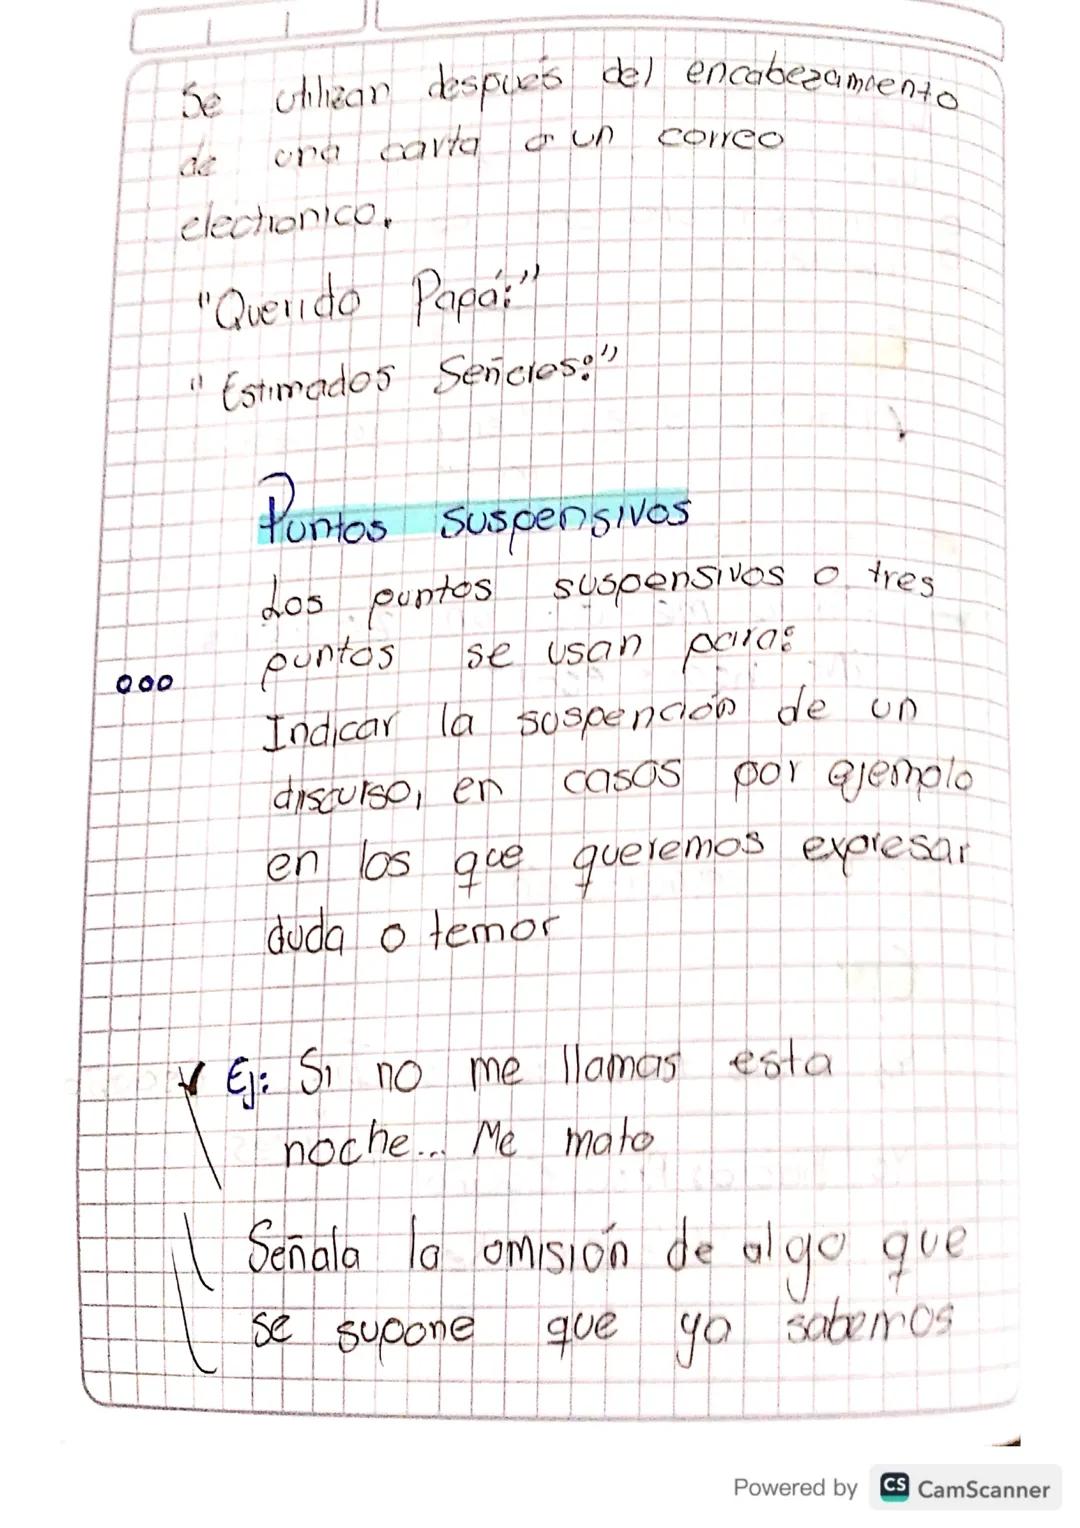 Se utilizan después del encabezamiento
de una carta o un correo
electronico.
"Querido Papá:"
"Estimados Señores:"
Puntos suspensivos
Los puntos suspensivos o tres
puntos se usan para:
ooo
Indicar la suspención de un
discurso, en casos por ejemplo
en los que queremos expresar
duda o temor
Ej: Si no me llamas esta
noche... Me mato
Señala la omisión de algo que
se supone que ya sabemos
Powered by CS CamScanner